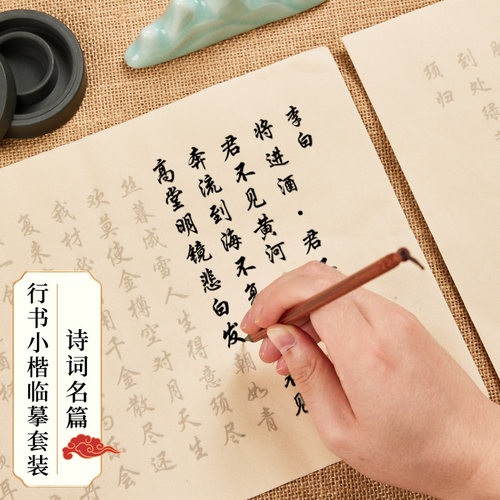 李白
将进酒·君
君不见黄河
奔流到海不复
见
高堂明镜悲白发朝如青
丝暮成雪人生得意须尽
欢莫使金樽空对月天生
我材必
用千金散尽还
复来
到处缘
须归
诗词名篇
行书小楷临摹套装